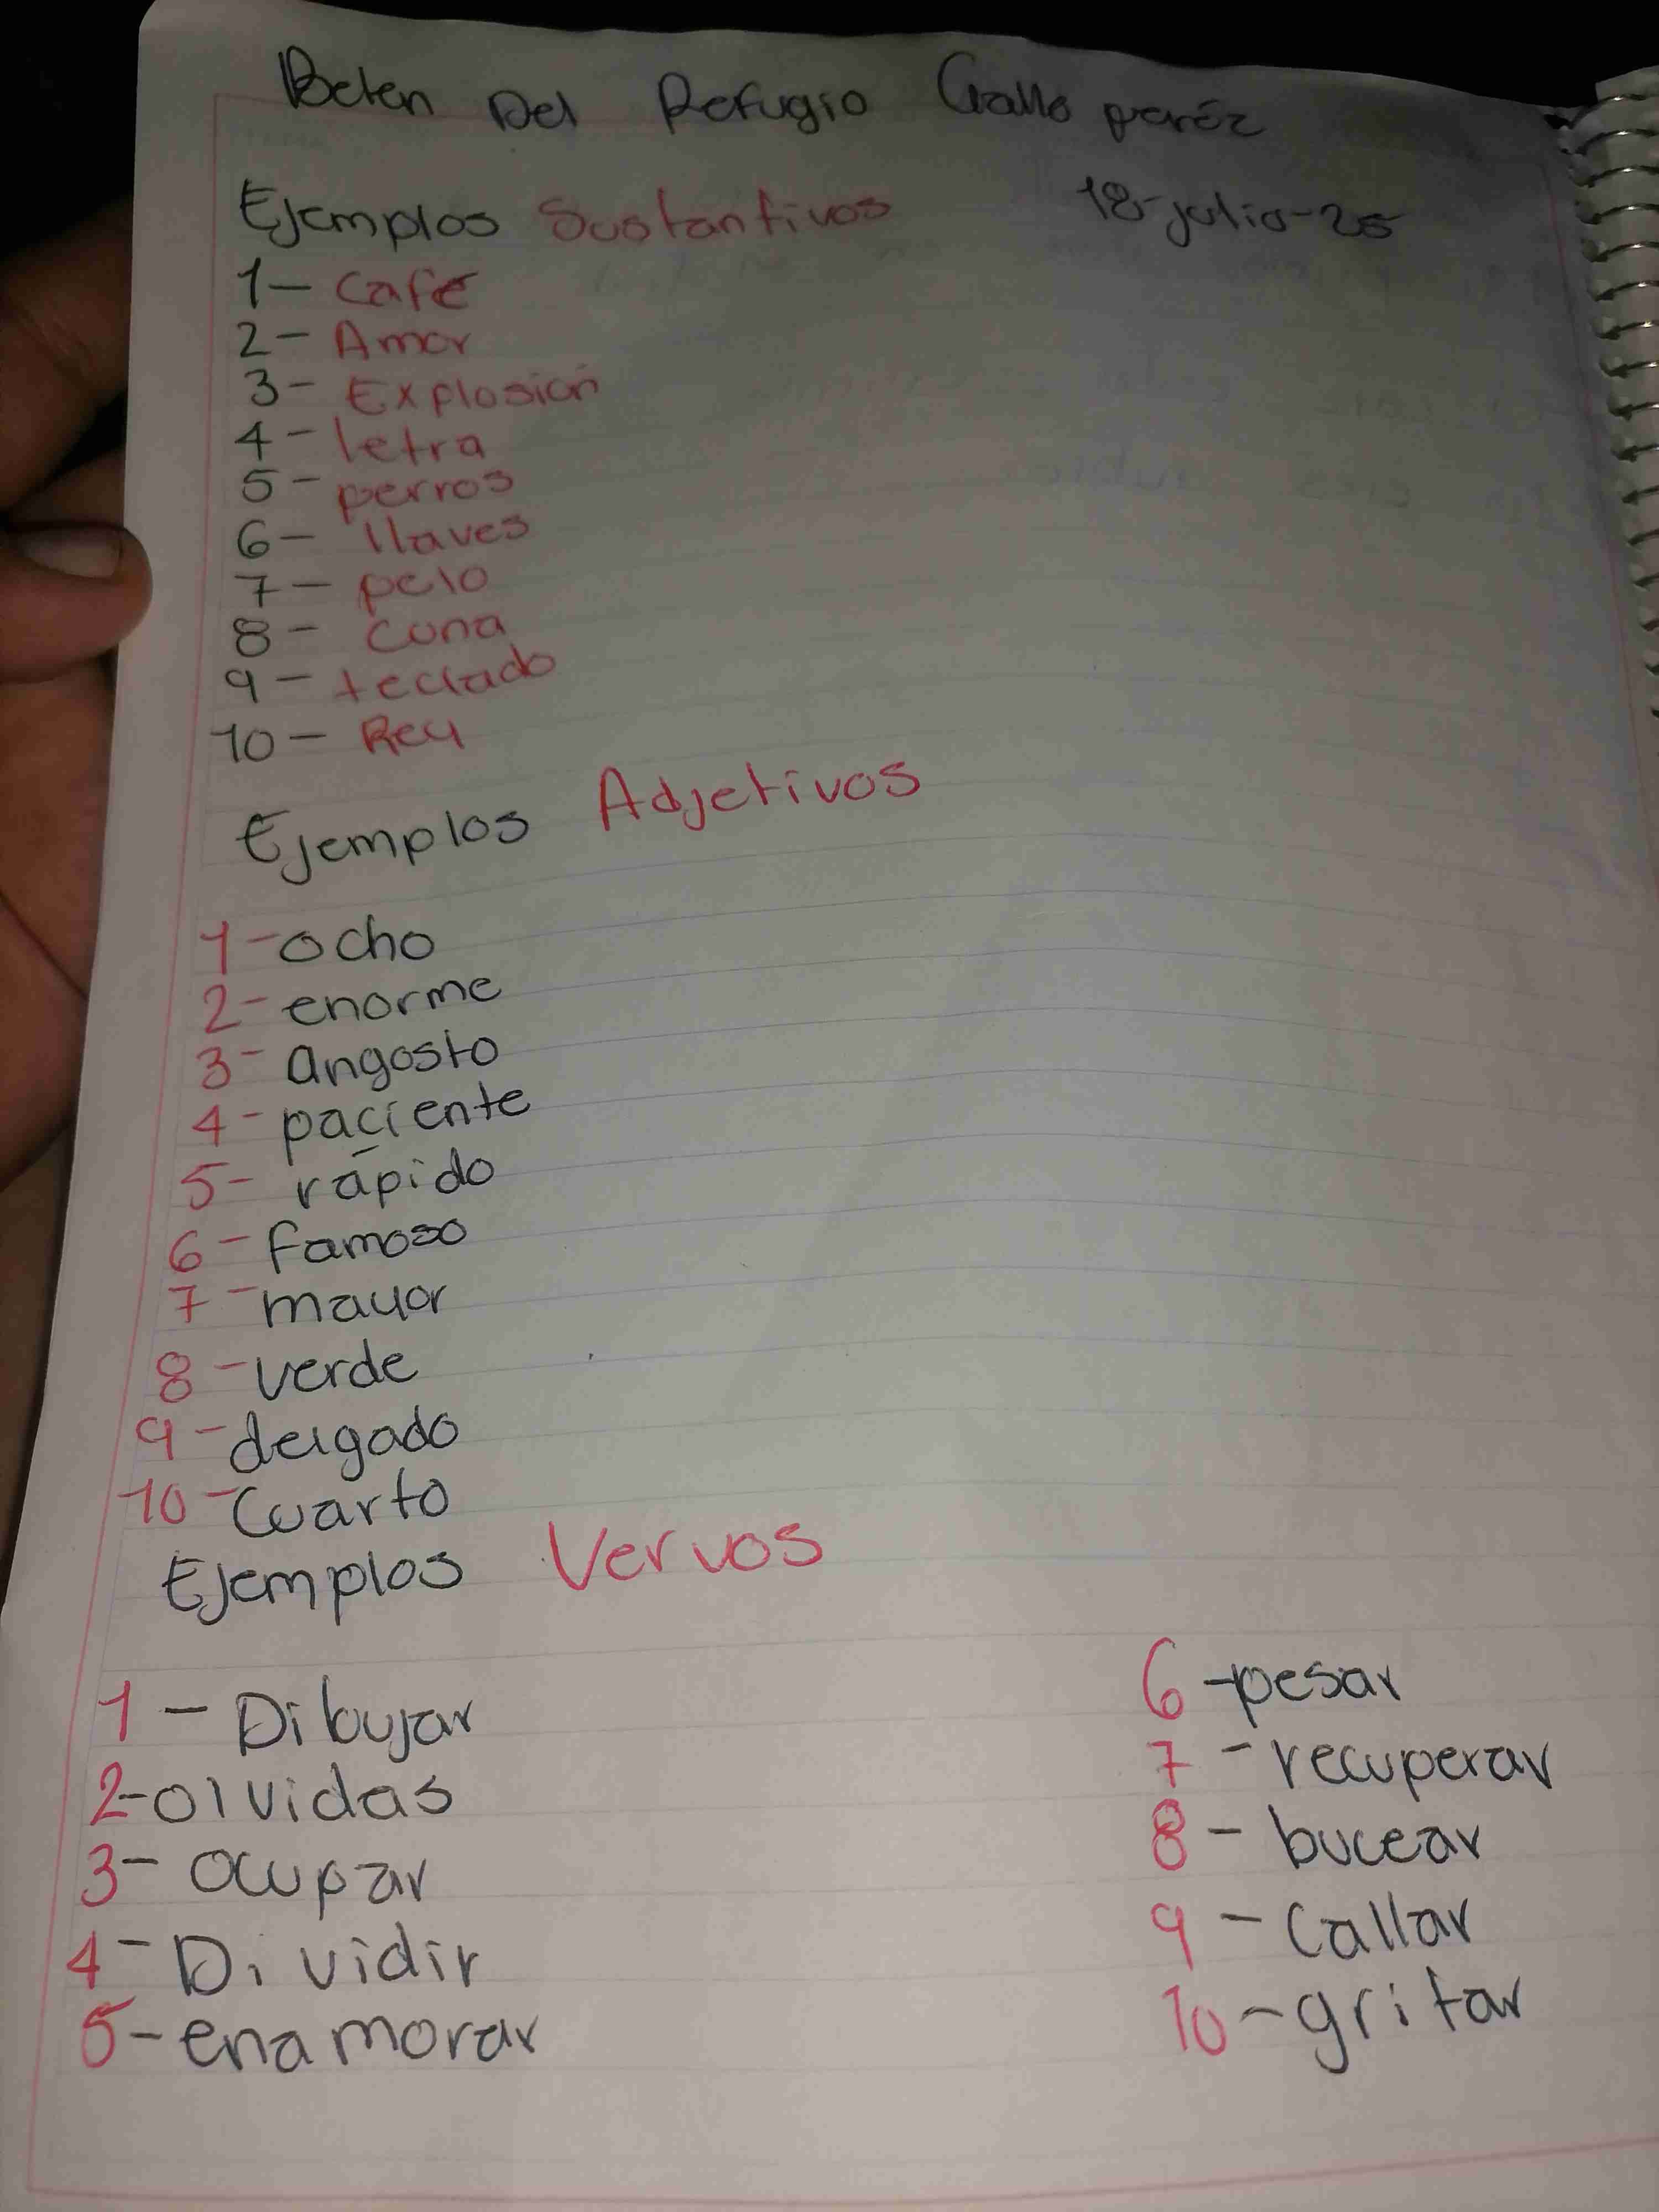 Belen Del Refugio Gallo peréz
Ejemplos Sustantivos 18-julio-25
1- café
2- Amor
3- Explosión
4- letra
5- perros
6- llaves
7- pelo
8- cuna
9- teclado
10- Rey
Ejemplos Adjetivos
1- ocho
2- enorme
3- angosto
4- paciente
5- rápido
6- famoso
7- mayor
8- verde
9- delgado
10- Cuarto
Ejemplos Vervos
1- Dibujar
2- olvidas
3- ocupar
4- Dividir
5- enamorar
6- pesar
7- recuperar
8- bucear
9- Callar
10- gritar